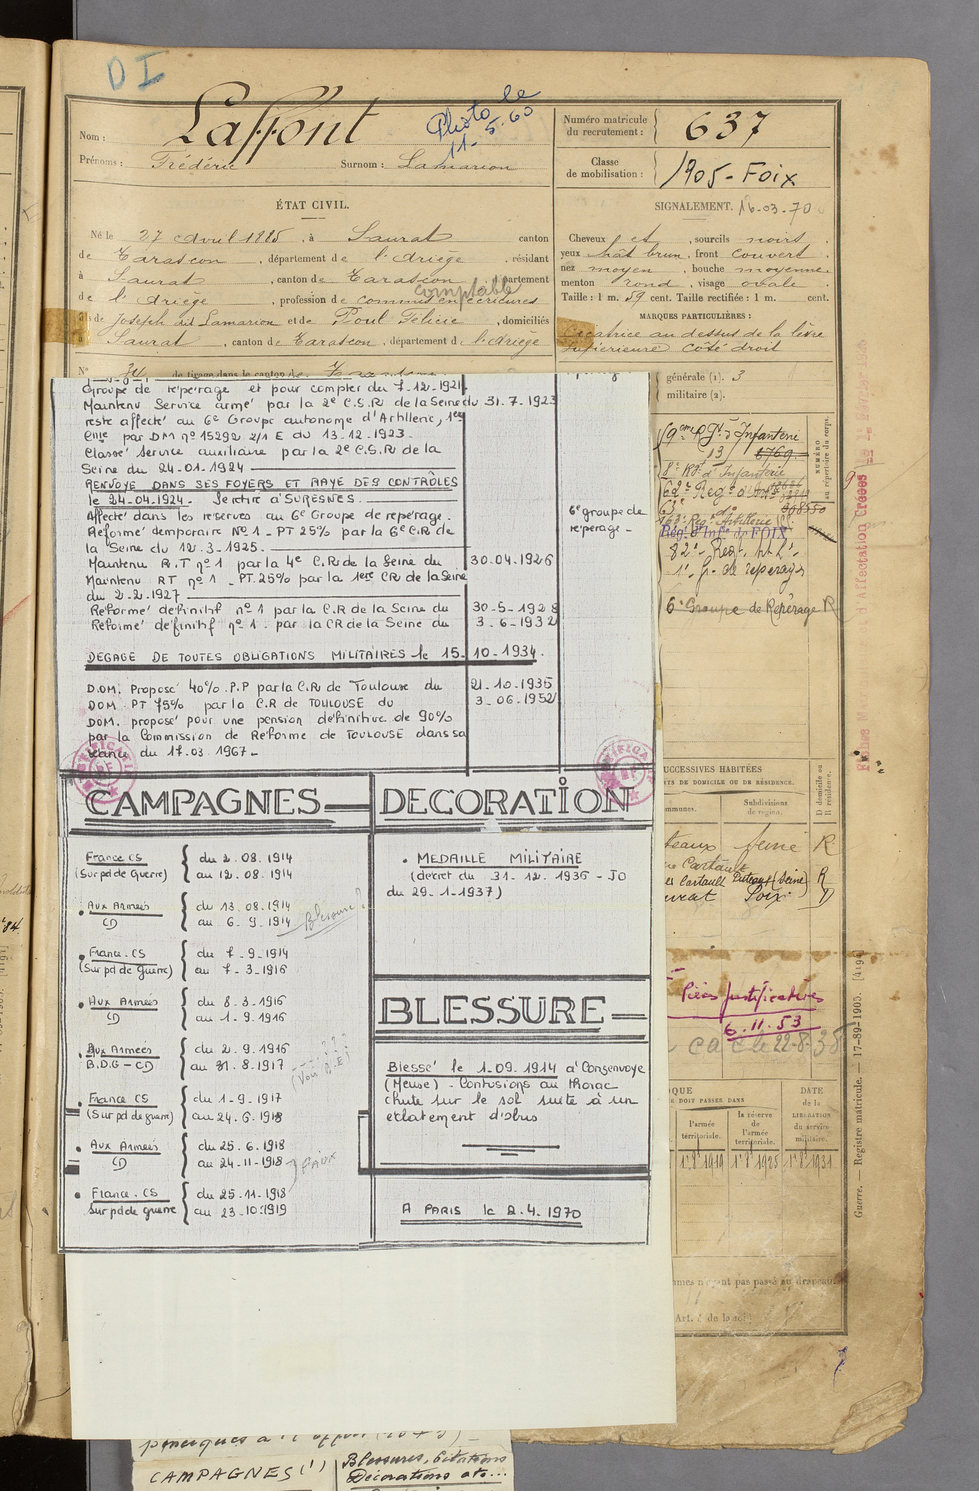 DI
Nom : Laffont
Photo le
11-5.60
Prénoms : Frédéric Surnom : Lamarion
Numéro matricule
du recrutement : 637
Classe
de mobilisation : 1905-Foix
ÉTAT CIVIL.
Né le 27 avril 1885, à Saurat canton
de Tarascon, département de l'Ariège, résidant
à Saurat, canton de Tarascon, département
comptable
de l'Ariège, profession de commis en écritures
de Joseph dit Lamarion et de Poul Félicie, domiciliés
à Saurat, canton de Tarascon, département de l'Ariège
N° de tirage dans le canton de
SIGNALEMENT. 16-03-70
Cheveux et, sourcils noirs,
yeux chât brun, front couvert,
nez moyen, bouche moyenne,
menton rond, visage ovale
Taille : 1 m. 59 cent. Taille rectifiée : 1 m. cent.
MARQUES PARTICULIÈRES :
Cicatrice au dessus de la lèvre
supérieure côté droit
générale (1). 3
militaire (2).
NUMÉRO
au répertoire du corps.
59eme Rgt d'Infanterie
13 6769
d'Infanterie
d'Infie de FOIX
82e Regt
1er gr. de repérage
6e Groupe de Repérage R
Groupe de repérage et pour compter du 7-12-1921.
Maintenu Service armé par la 2e C.S.R de la Seine du 31.7-1923
reste affecté au 6e Groupe autonome d'Artillerie, 1ere
Cnie par DM n° 15292 2/1 E du 13-12-1923.
Classé service auxiliaire par la 2e C.S.R de la
Seine du 24-01-1924
RENVOYE DANS SES FOYERS ET RAYE DES CONTRÔLES
le 24-04-1924. Se retire à SURESNES.
Affecté dans les reserves au 6e Groupe de repérage.
Réformé temporaire N°1 - PT 25% par la 6e C.R de
la Seine du 12-3-1925.
Maintenu R.T n°1 par la 4e C.R de la Seine du 30.04.1926
Maintenu RT n°1 - PT.25% par la 1ere CR de la Seine
du 2-2-1927
Réformé définitif n°1 par la C.R de la Seine du 30-5-1928
Réformé définitif n°1. par la CR de la Seine du 3-6-1932
6e groupe de
repérage -
DEGAGE DE TOUTES OBLIGATIONS MILITAIRES le 15-10-1934.
D.OM. Proposé 40% P.P par la C.R de Toulouse du 21-10-1935
DOM PT 75% par la C.R de TOULOUSE du 3-06-1952
DOM. proposé pour une pension définitive de 90%
par la Commission de Reforme de TOULOUSE dans sa
séance du 17.03.1967-
CAMPAGNES
France CS
(Sur pd de Guerre)
du 2.08.1914
au 12.08.1914
Aux Armées
CD
du 13.08.1914
au 6-9-1914 Blessure?
France.CS
(Sur pd de Guerre)
du 7-9-1914
au 7-3-1916
Aux Armées
CD
du 8-3-1916
au 1-9-1916
Aux Armées
B.D.G-CD
du 2-9-1916
au 31.8.1917
France CS
(Sur pd de guerre)
du 1-9-1917
au 24-6-1918
Aux Armées
CD
du 25.6.1918
au 24-11-1918 Faux
France.CS
sur pd de guerre
du 25-11-1918
au 23-10-1919
DECORATION
MEDAILLE MILITAIRE
(décret du 31.12.1936 - JO
du 29-1-1937)
BLESSURE
Blessé le 1-09.1914 à Consenvoye
(Meuse) - Contusions au thorax
chute sur le sol suite à un
eclatement d'obus
A PARIS le 2.4.1970
SUCCESSIVES HABITÉES
DE DOMICILE OU DE RÉSIDENCE.
Subdivisions
de région.
D domicile ou
R résidence.
Seine R
Cartault Puteaux (Seine) R
Foix D
Pièces justificatives
6.11.53
22-8-38
DOIT PASSER DANS
l'armée
territoriale.
la réserve
de
l'armée
territoriale.
DATE
de la
LIBÉRATION
du service
militaire.
1er 8bre 1919 1er 8bre 1925 1er 8bre 1931
Guerre. — Registre matricule. — 17-89-1905. [419]
CAMPAGNES (1)
Blessures, Citations
Décorations etc...